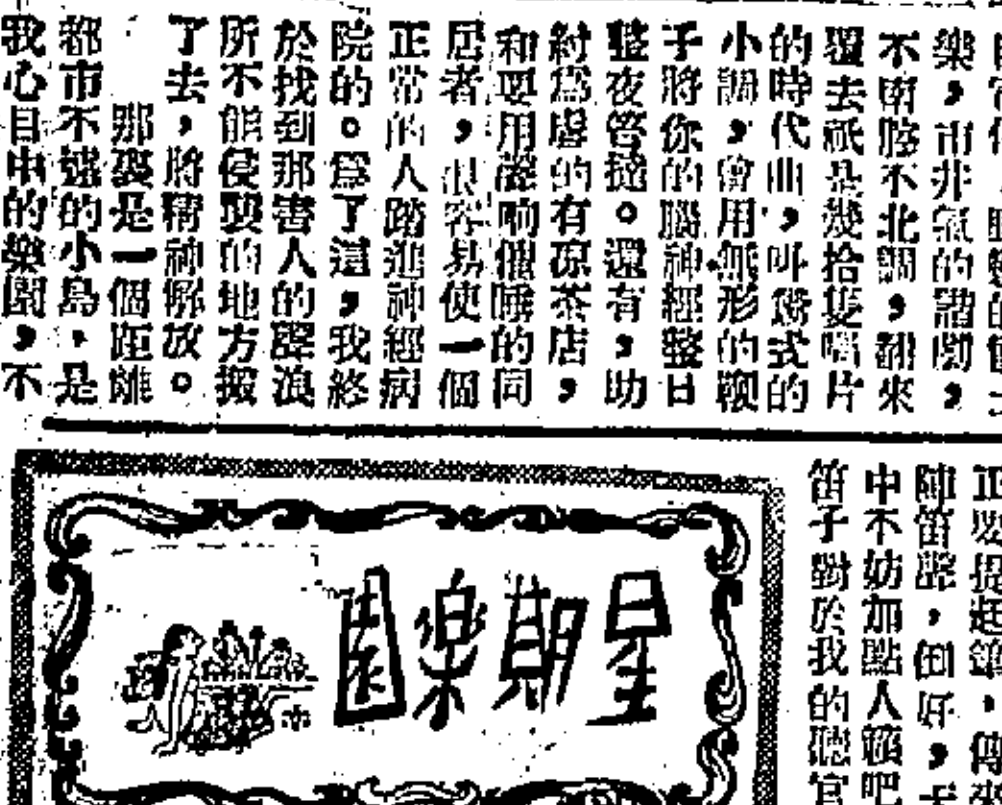 樂，市井氣的諧劇，
不南腔不北調，翻來
覆去祇是幾拾隻唱片
的時代曲，叫賣式的
小調，會用無形的鞭
子將你的腦神經整日
整夜管撻。還有，助
紂爲虐的有凉茶店，
和要用滋响催睡的同
居者，很容易使一個
正常的人踏進神經病
院的。爲了這，我終
於找到那害人的聲浪
所不能侵襲的地方搬
了去，將精神解放。
那裏是一個距離
都市不遠的小島，是
我心目中的樂園，不
正要提起鎗，傳來
陣笛聲，倒好，
中不妨加點人籟吧
笛子對於我的聽官
星期樂園